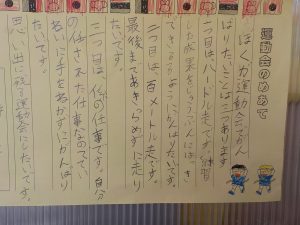 運動会のめあて
ぼくが運動会でがん
ばりたいことは三つあります。
一つ目は、ハードル走です。練習
した成果をじゅうぶんにはっき
できるようにがんばりたいです。
二つ目は、百メートル走です。
最後まであきらめずに走り
たいです。
三つ目は、係の仕事です。自分
の仕事をされた仕事なのでてい
ねいに手をぬかずにがんばり
たいです。
思い出に残る運動会にしたいです。